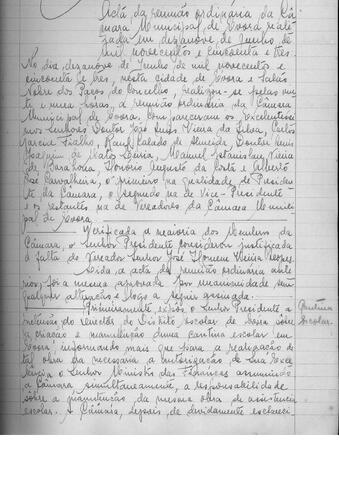 Acta da reunião ordinária da Câ-
mara Municipal de Évora reali-
zada em dezanove de Junho de
mil novecentos e cincoenta e três
No dia dezanove de Junho de mil novecentos e
cincoenta e três, nesta cidade de Évora e Salão
Nobre dos Paços do Concelho, realizou-se pelas vin-
te e uma horas, a reunião ordinária da Câmara
Municipal de Évora. Compareceram os Excelentíssi-
mos Senhores Doutor José Luís Vieira da Silva, Carlos
Garcia Fialho, Raul Calado de Almeida, Doutor Luís
Joaquim de Matos, Manuel Estanislau Vieira
de Barahona, Honório Augusto da Costa e Alberto
José Carvalheira, o primeiro na qualidade de Presiden-
te da Câmara, o segundo na de Vice-Presidente
e os restantes na de Vereadores da Câmara Munici-
pal de Évora.
Verificada a maioria dos Membros da
Câmara, o Senhor Presidente considerou justificada
a falta do Vereador Senhor José Filomeno
Lida a acta da reunião ordinária ante-
rior, foi a mesma aprovada por unanimidade sem
qualquer alteração e logo a seguir assinada.
Primeiramente expôs o Senhor Presidente a
pretensão do Director do Distrito escolar de Évora sobre
a criação e manutenção duma cantina escolar em
Évora informando mais que para a realização de
tal obra era necessária a autorização de Sua Exce-
lência o Senhor Ministro das Finanças assumindo
a Câmara simultaneamente, a responsabilidade
sobre a manutenção da mesma obra de assistência
escolar. A Câmara, depois de devidamente esclareci-
Cantina
Escolar.